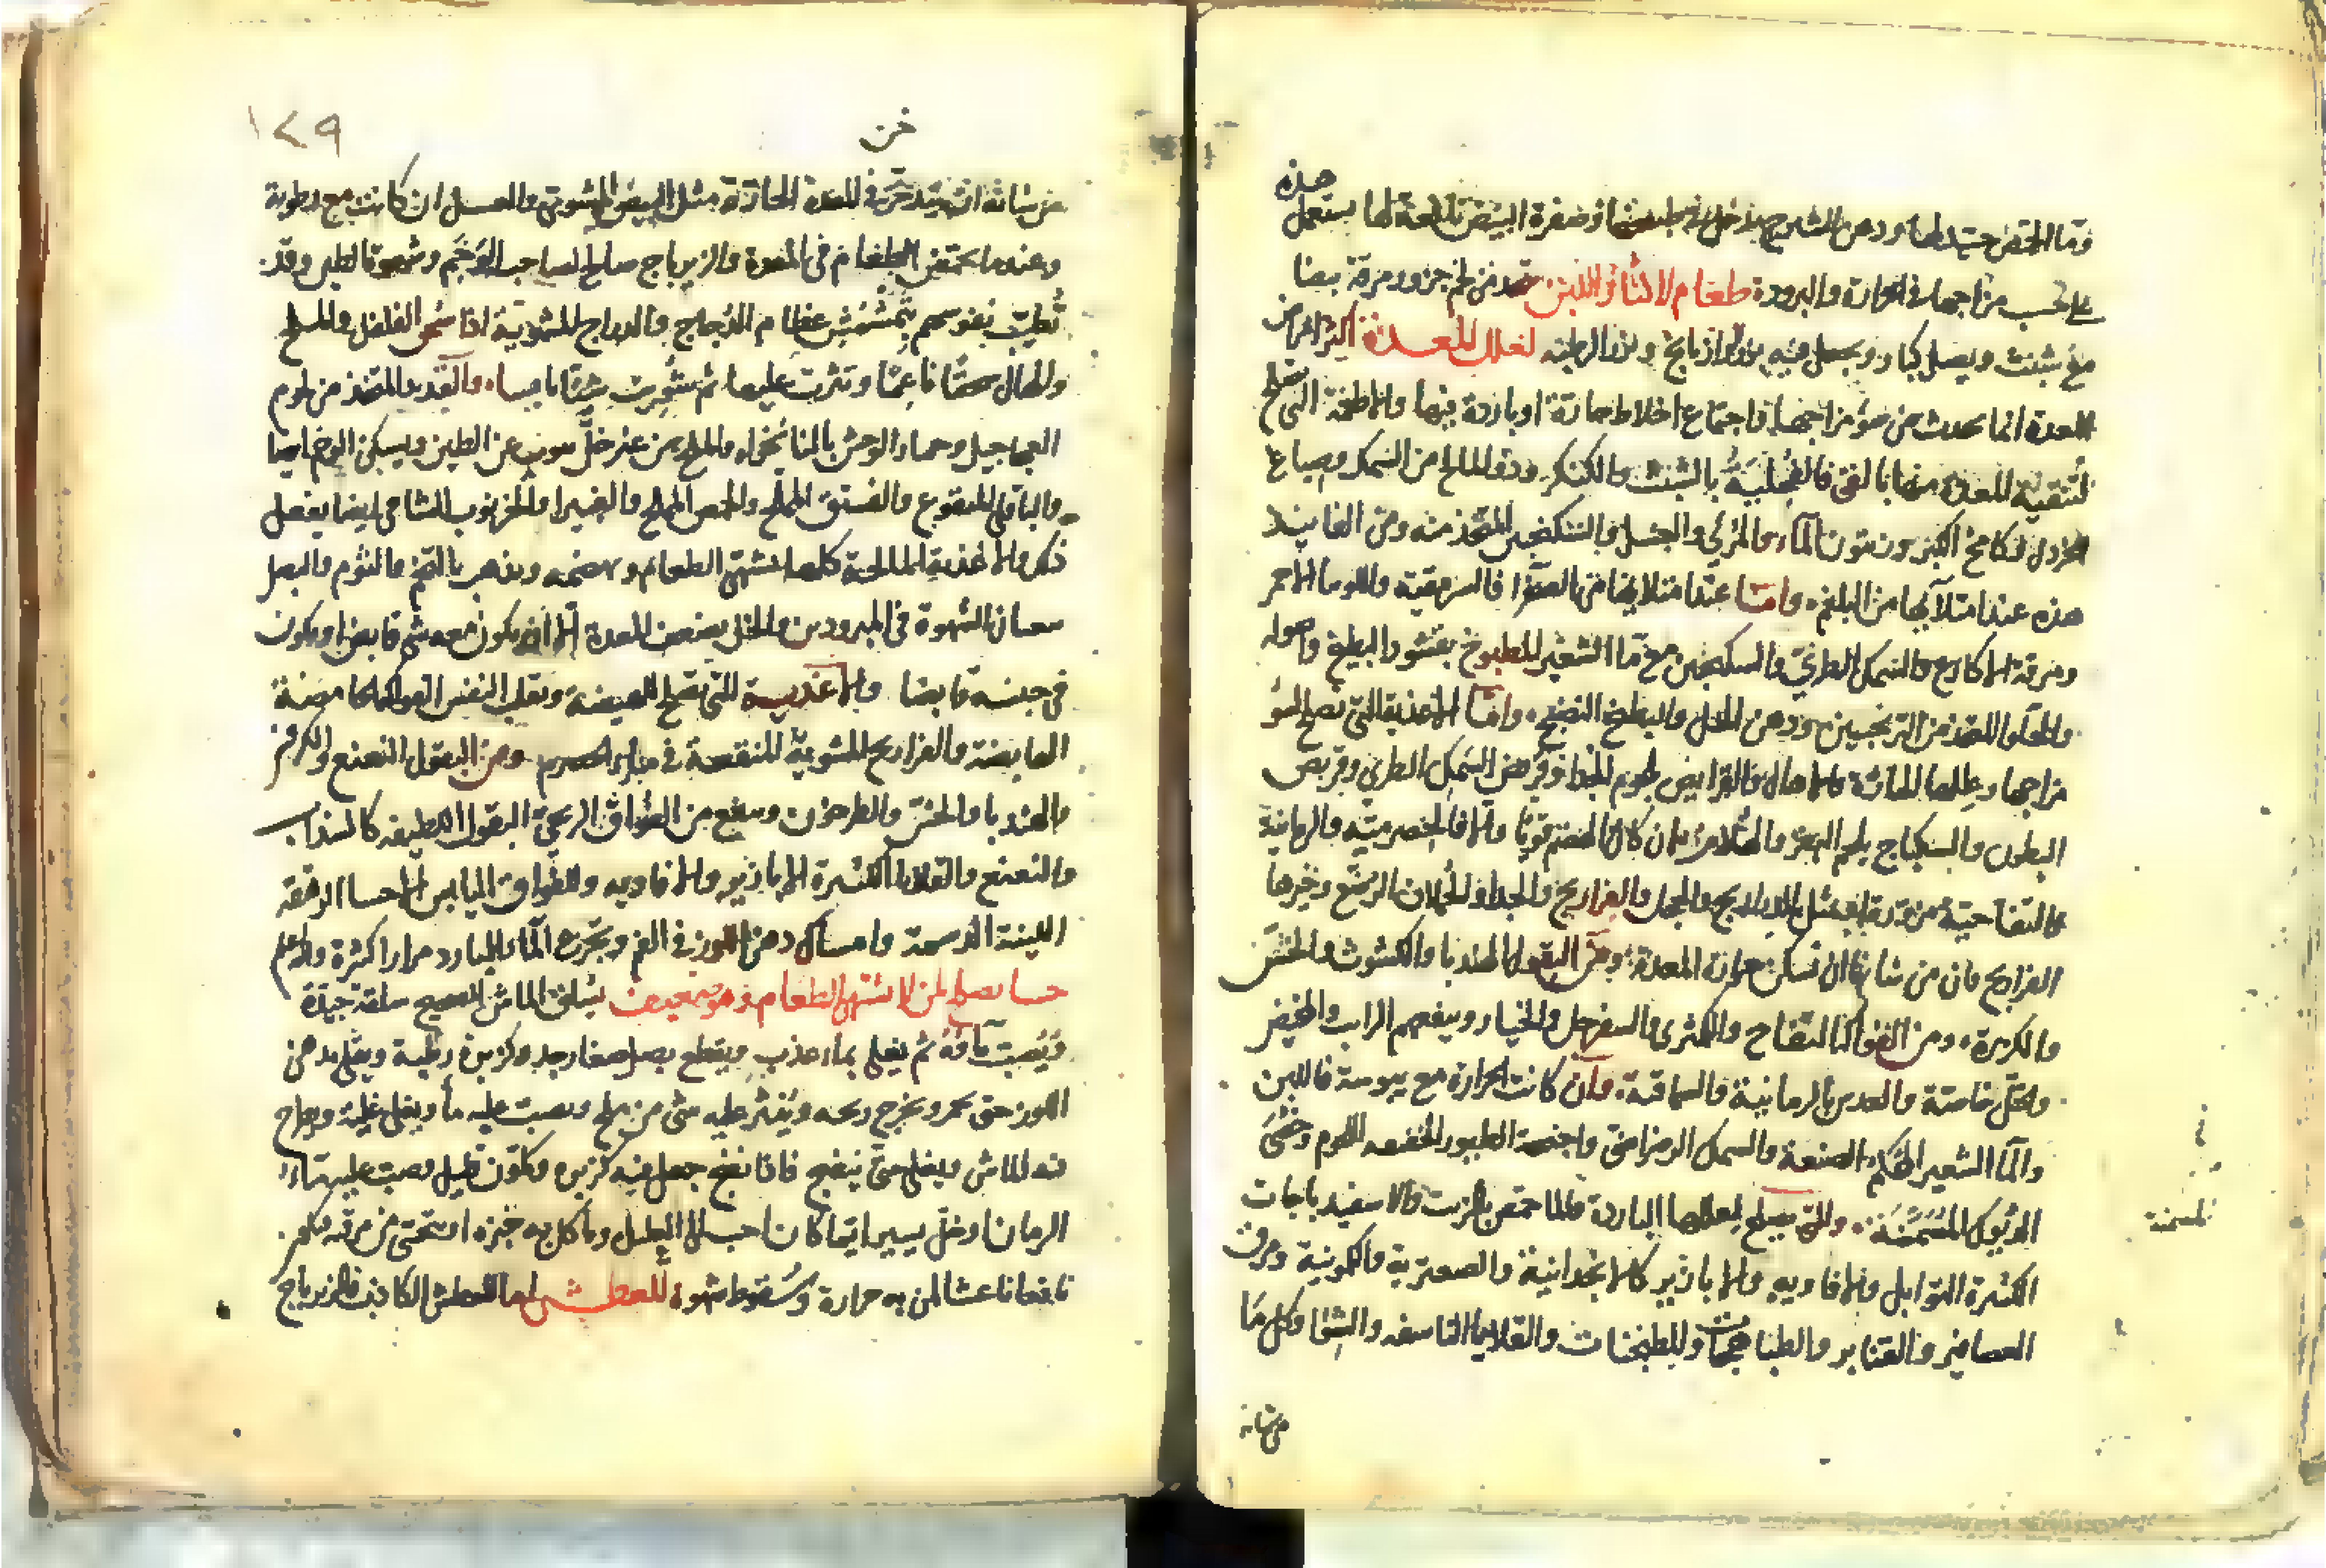 هذه
وماء الحمص جيد لها ودهن الشيرج يدخل في طبيخها وصفرة البيض نافعة لها يستعمل
على حسب مزاجها في الحرارة والبرودة طعام لاكثار اللبن يتخذ من لحم جزور ومرقة بيضا
مع شبث وبصل كبار ويجعل فيه بزر الرازيانج وبزر الرطبة لعلل المعدة اكثر امراض
المعدة انما يحدث من سوء مزاجها واجتماع اخلاط حارة او باردة فيها والاطعمة التي تصلح
لتنقية المعدة منها بالقي فالفجلية بالشبث والكنكر وذو المالح من السمك وصباغ
الخردل وكامخ الكبر وزيتون الماء والمري والعسل والسكنجبين المتخذ منه ومن الفانيد
هذه عند امتلائها من البلغم، وامّا عند امتلائها من الصفرا فالسرمقية واللوبيا الاحمر
ومرقة الاكارع والسمك الطري والسكنجبين مع ماء الشعير المطبوخ بقشور البطيخ واصوله
والحلوا المتخذ من الترنجبين ودهن الخل والبطيخ النضيج، وامّا الاغذية التي تصلح لسوء
مزاجها وعللها الحارّة كالاهال والقرايص بلحوم الجداء وقريص السمك الطري وقريص
البطون والسكباج بلحم البقر والهلام ان كان الهضم قويًا والا فالحصرميّة والرمانية
والتفاحية مزورة او بمثل الدراريج والحجل والفراريج والجداء والحملان الرضّع وغيرها
الفراريج فان من شانها ان تسكن حرارة المعدة، ومن البقول الهندبا والكشوث والخسّ
والكزبرة، ومن الفواكه التفاح والكمثرى والسفرجل والخيار وينفعهم الرايب والمخيض
والخل خاصّة والعدس بالرمانية والسماقية، وان كانت الحرارة مع يبوسة فاللبن
والماء الشعير المحكم الصنعة والسمك الرضراضي واجنحة الطيور الخفيفة اللحوم وخصى
الديوك المسمّنة، والتي يصلح لعللها الباردة فالماء حمص بالزيت والاسفيدباجات
المسمنة
الكثيرة التوابل والافاويه والابازير كالانجدانية والصعترية والكمونية ومرق
العصافير والقنابر والطباهجات والمطجنات والقلايا الناشفة والشوا وكل ما
من شانه
١٤٩
من شانه ان يتدخّن في المعدة الحارة مثل البيض المشوي والعسل ان كانت مع رطوبة
وعندما يحمض الطعام في المعدة والزيرباج صالح لصاحب الوخم وشهوة الطين وقد
تطيب نفوسهم بتمشمش عظام الدجاج والدراج المشوية اذا سحق الفلفل والملح
والهال سحقًا ناعمًا ونثرت عليها ثم شويت شيّا يابسا، والقديد المتخذ من لحوم
العجاجيل وحمار الوحش بالنانخواه والملح من غير خل ينوب عن الطين ويسكن الوخم ايضا
والباقلي المنقوع والفستق المملح والحمص المملح والغبيرا والخرنوب الشامي ايضا يفعل
ذلك والاغذية المالحة كلها تشهي الطعام وتهضمه ويذهب بالتخم والثوم والبصل
يبعثان الشهوة في المبرودين والخل يضعف المعدة الا ان يكون معه شي قابض او يكون
في جنسه قابضا والاغذية التي تصلح للهيضة وتقلب النفس الفواكه الحامضة
القابضة والفراريج المشوية المنقعة في ماء الحصرم ومن البقول النعنع والكرفس
والهندبا والخسّ والطرخون وينفع من الفواق الريحي البقول اللطيفة كالسذاب
والنعنع والقلايا الكثيرة الابازير والافاويه والفواق اليابس الاحسا الرقيقة
اللينة الدسمة وامساك دهن اللوز في الفم وتجرع الماء البارد مرارا كثيرة
حسا يصلح لمن لا يشتهي الطعام وهو ضعيف يسلق الماش الصحيح سلقة جيّدة
ويُصب ماؤه ثم يغلى بماء عذب ويقطع بصل صغار جدا وكزبرة رطبة ويقلى بدهن
اللوز حتى يحمر ويخرج ريحه ويُنثر عليه شي من ملح ويصب عليه ماء ويغلى غلية ويطرح
فيه الماش ويغلى حتى ينضج فاذا نضج جعل فيه كزبرة وكمون قليل وصب عليه ماء
الرمان او خل يسير ايّما كان احب الى العليل وياكل به خبزه او يتحسى من مرقه يكون
نافعا ناعشا لمن به حرارة وسُقوط شهوة للعطش اما العطش الكاذب فالزيرباج